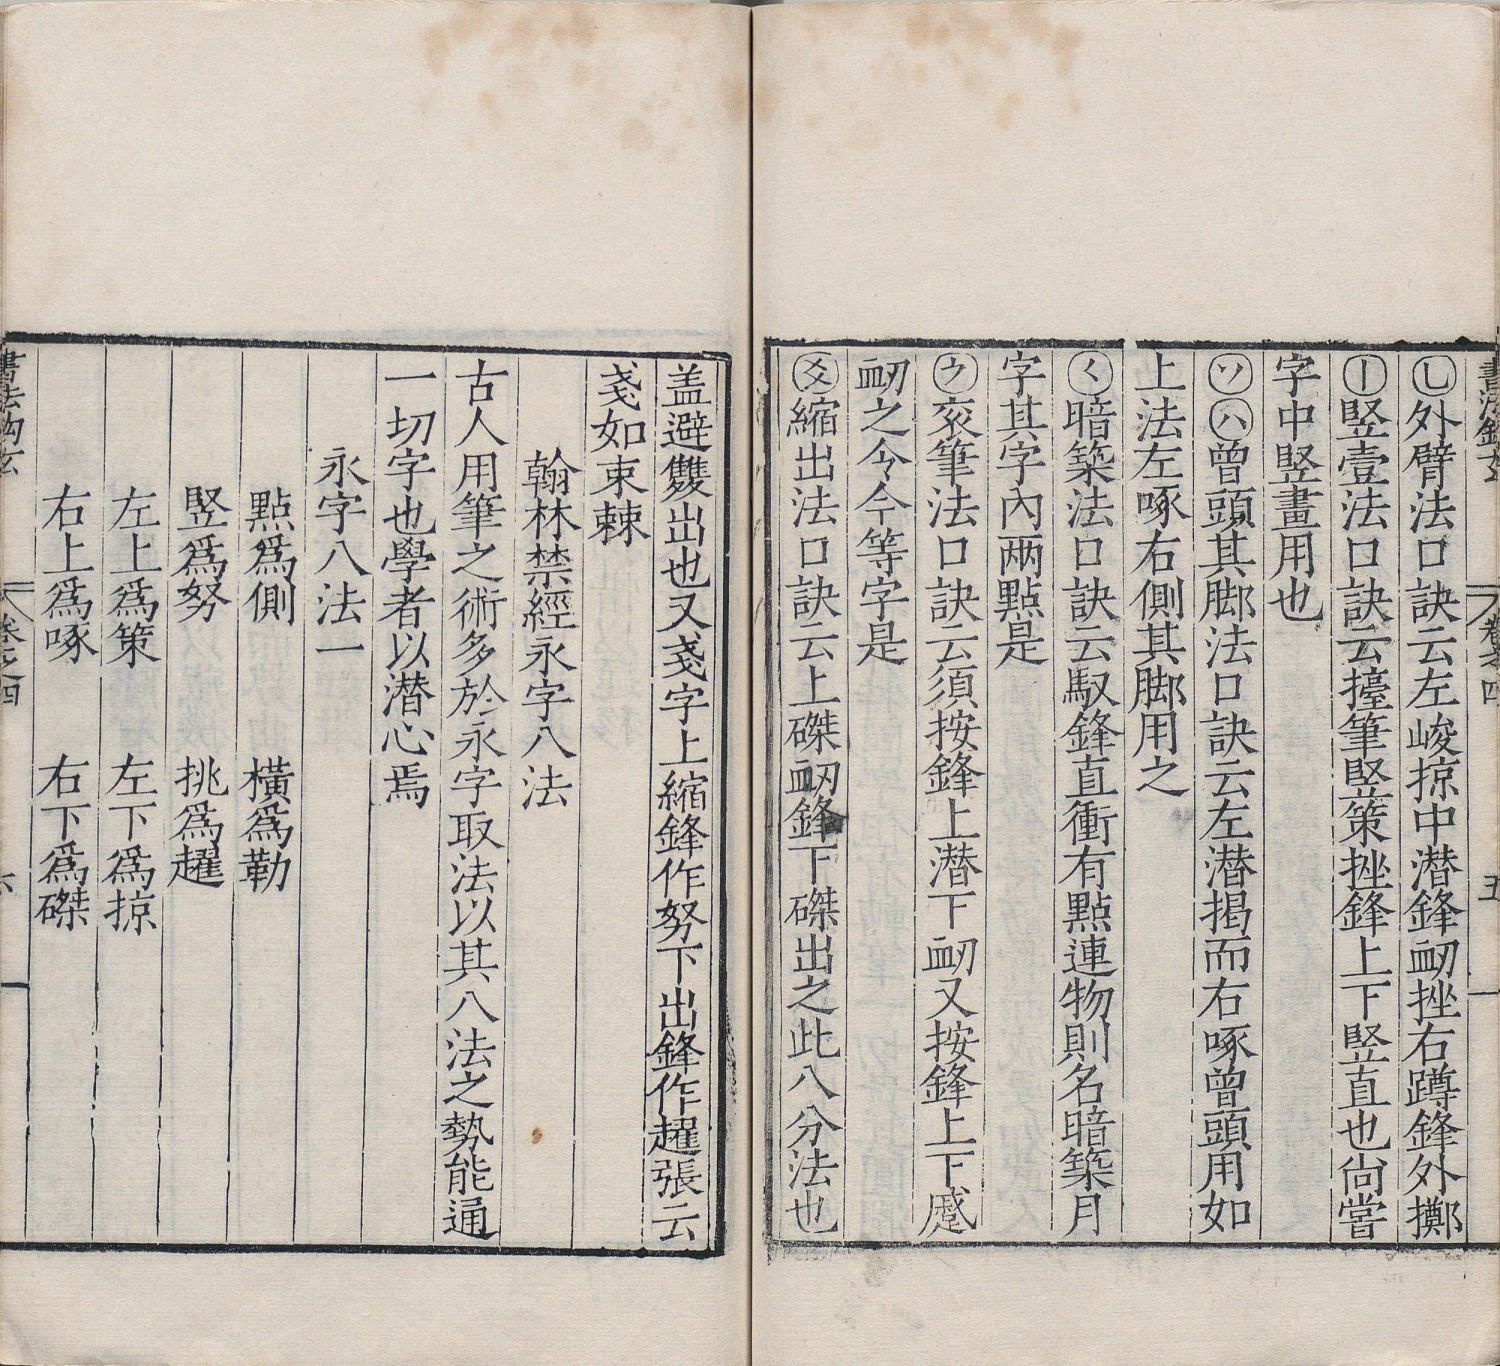 書法鉤玄 卷之四 五
乚外臂法口訣云左峻掠中潛鋒衂挫右蹲鋒外擲
丨竪壹法口訣云擡筆竪策挫鋒上下竪直也尙嘗
字中竪畫用也
ソハ曾頭其脚法口訣云左潛揭而右啄曾頭用如
上法左啄右側其脚用之
く暗築法口訣云馭鋒直衝有點連物則名暗築月
字其字內兩點是
ウ衮筆法口訣云須按鋒上潛下衂又按鋒上下蹙
衂之令今等字是
爻縮出法口訣云上磔衂鋒下磔出之此八分法也
盖避雙出也又戔字上縮鋒作努下出鋒作趯張云
戔如束棘
翰林禁經永字八法
古人用筆之術多於永字取法以其八法之勢能通
一切字也學者以潛心焉
永字八法一
點爲側 橫爲勒
竪爲努 挑爲趯
左上爲策 左下爲掠
右上爲啄 右下爲磔
書法鉤玄 卷之四 六